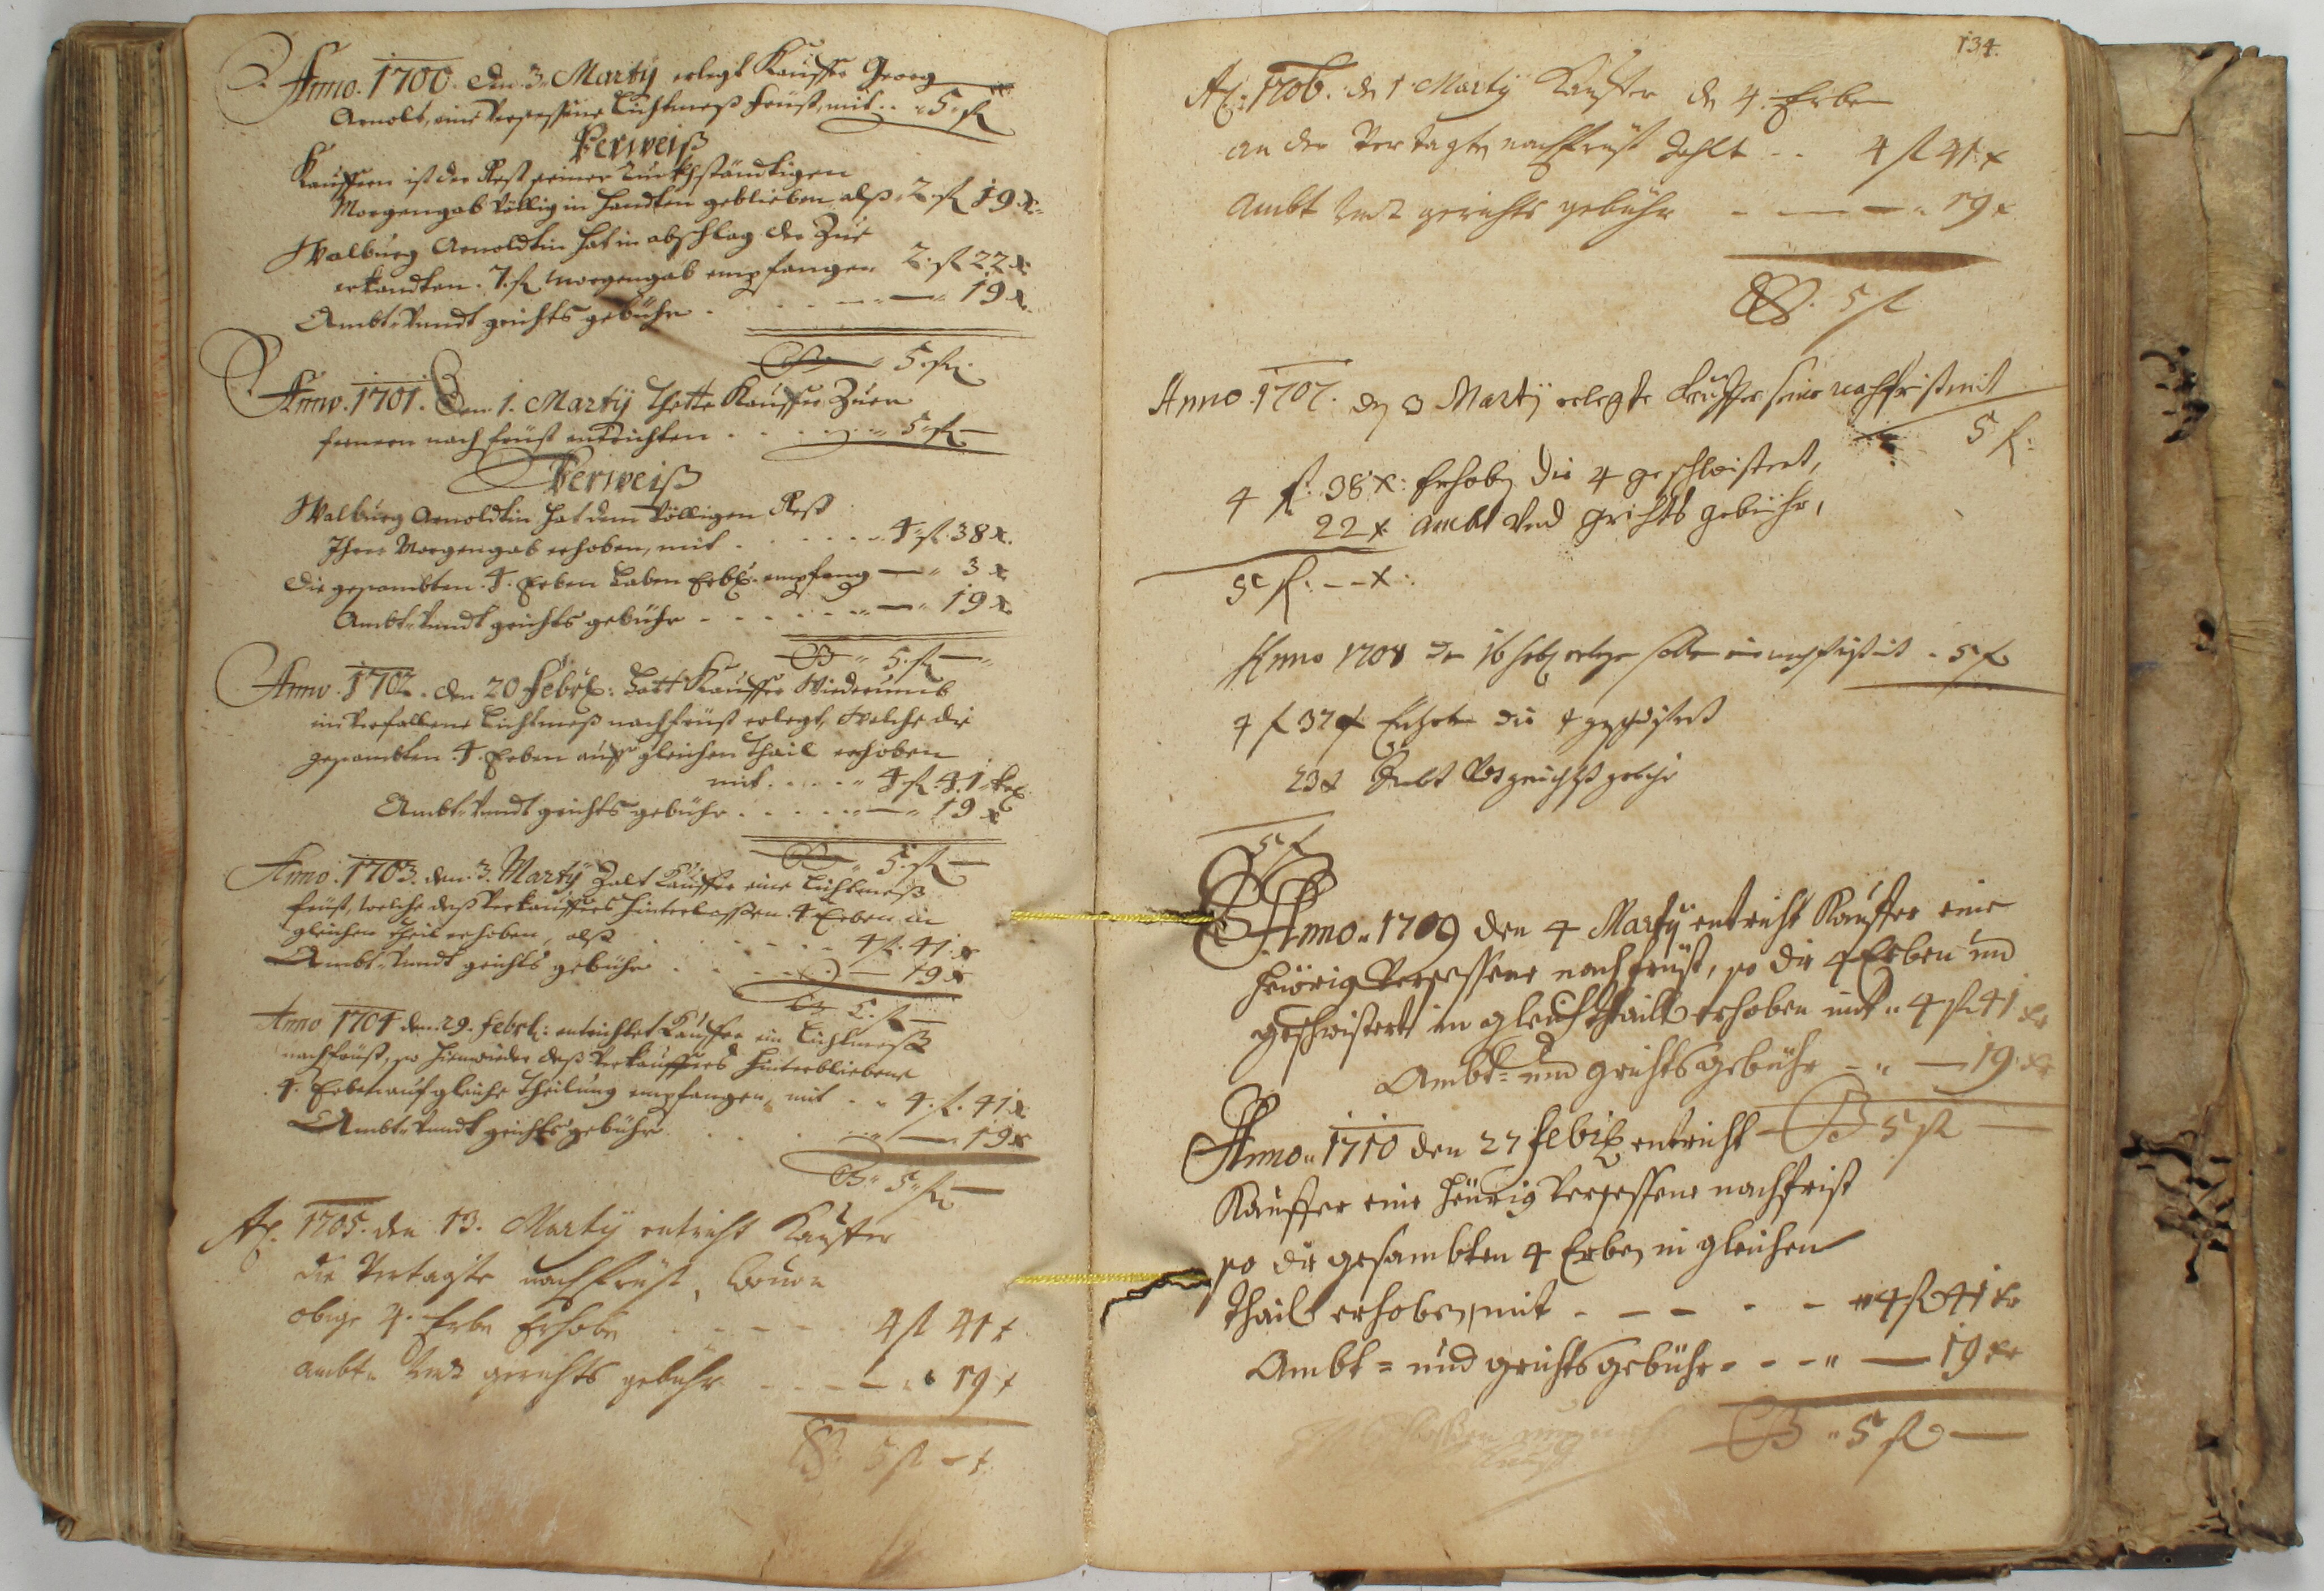 Anno. 1700. den 3. Martÿ erlegt Kauffer Georg
Arnolt, eine versessene Liechtmeß früst, mit .. 5. fl
Verweiß
Kauffern ist der Rest seiner
Morgengab völlig in handten geblieben, alß 2. fl 19 x.
Walburg Arnoldtin hat in abschlag der Zue
erkandten. 7. fl morgengab empfangen 2. fl 22 x.
Ambt- vnndt grichts gebühr . . . — 19 x.
5. fl.
Anno. 1701. Den. 1. Martÿ thette Kauffer Zuer
fernern nach früst entrichten . . . 5. fl —
Verweiß
Walburg Arnoldtin hat dem völligen Rest
Ihrer Morgengab erhoben, mit . . . . . . 4. fl. 38 x.
die gesambten. 4. Erben haben empfang — 3 x
Ambt- vnndt grichts gebühr . . . . — 19 x
5. fl —
Anno. 1702. den 20 Febr: hatt Kauffer Widerumb
ein verfallene Liechtmeß nachfrüst erlegt, welche die
gesambten. 4. Erben auf gleichen thail erhoben
mit . . . . . 4. fl. 41. kr
Ambt- vnndt grichts gebühr . . . . . — 19 x
5. fl —
Anno. 1703. den. 3. Martÿ Zalt Kauffer eine Liechtmeß
früst, welche deß verkauffers hinterlassen. 4 Erben in
gleichen theil erhoben, alß . . . . 4 fl. 41. x
Ambt- vnndt grichts gebühr . . . . — 19 x
5. fl —
Anno 1704 den. 29. Febr: entrichtet Kauffer ein Liechtmeß
nachfrüst, so hierwieder deß verkauffers hinterbliebene
4. Erben auf gleiche theilung empfangen, mit . . 4. fl. 41 x
Ambt- vnndt grichts gebühr . . . — 19 x
5. fl —
Ao. 1705. den 13. Martÿ entricht Kauffer
die vertagte nachfrüst, dauon
obige 4. Erbn Erhobn . . . . 4 fl 41 x
ambt- vnd gerichts gebühr . . . — 19 x
5 fl — x
134.
Ao. 1706. dn 1 Martÿ Kauffer dn 4. Erben
an der vertagtn nachfrüst Zahlt . . 4 fl 41 x
Ambt vnd gerichts gebühr — — — 19 x
5 fl
Anno. 1707. den 3 Martÿ erlegte Kauffer seine nachfrist mit
5 f:
4 f: 38 x: erhoben die 4 geschwistert,
22 x ambt vnd grichts gebühr,
5 f: — x:
Anno 1708 den 16 erlegte nachfrist mit 5 f
4 f 37 x Erhobn die 4 geschwistert
23 x Ambt vnd grichts gebühr
5 f
Anno. 1709 den 4 Martÿ entricht Kauffer eine
heurig versessene nachfrüst, so die 4 Erben und
geschwistert in gleichen thaill erhoben mit 4 fl 41 kr
Ambt= und grichts gebühr — — 19 kr
5 fl —
Anno. 1710 den 27 Febr entricht
Kauffer eine heurig versessene nachfrist
so die gesambten 4 Erben in gleichen
thaill erhoben, mit — — — 4 fl 41 kr
Ambt= und grichts gebühr — — — 19 kr
5 fl —